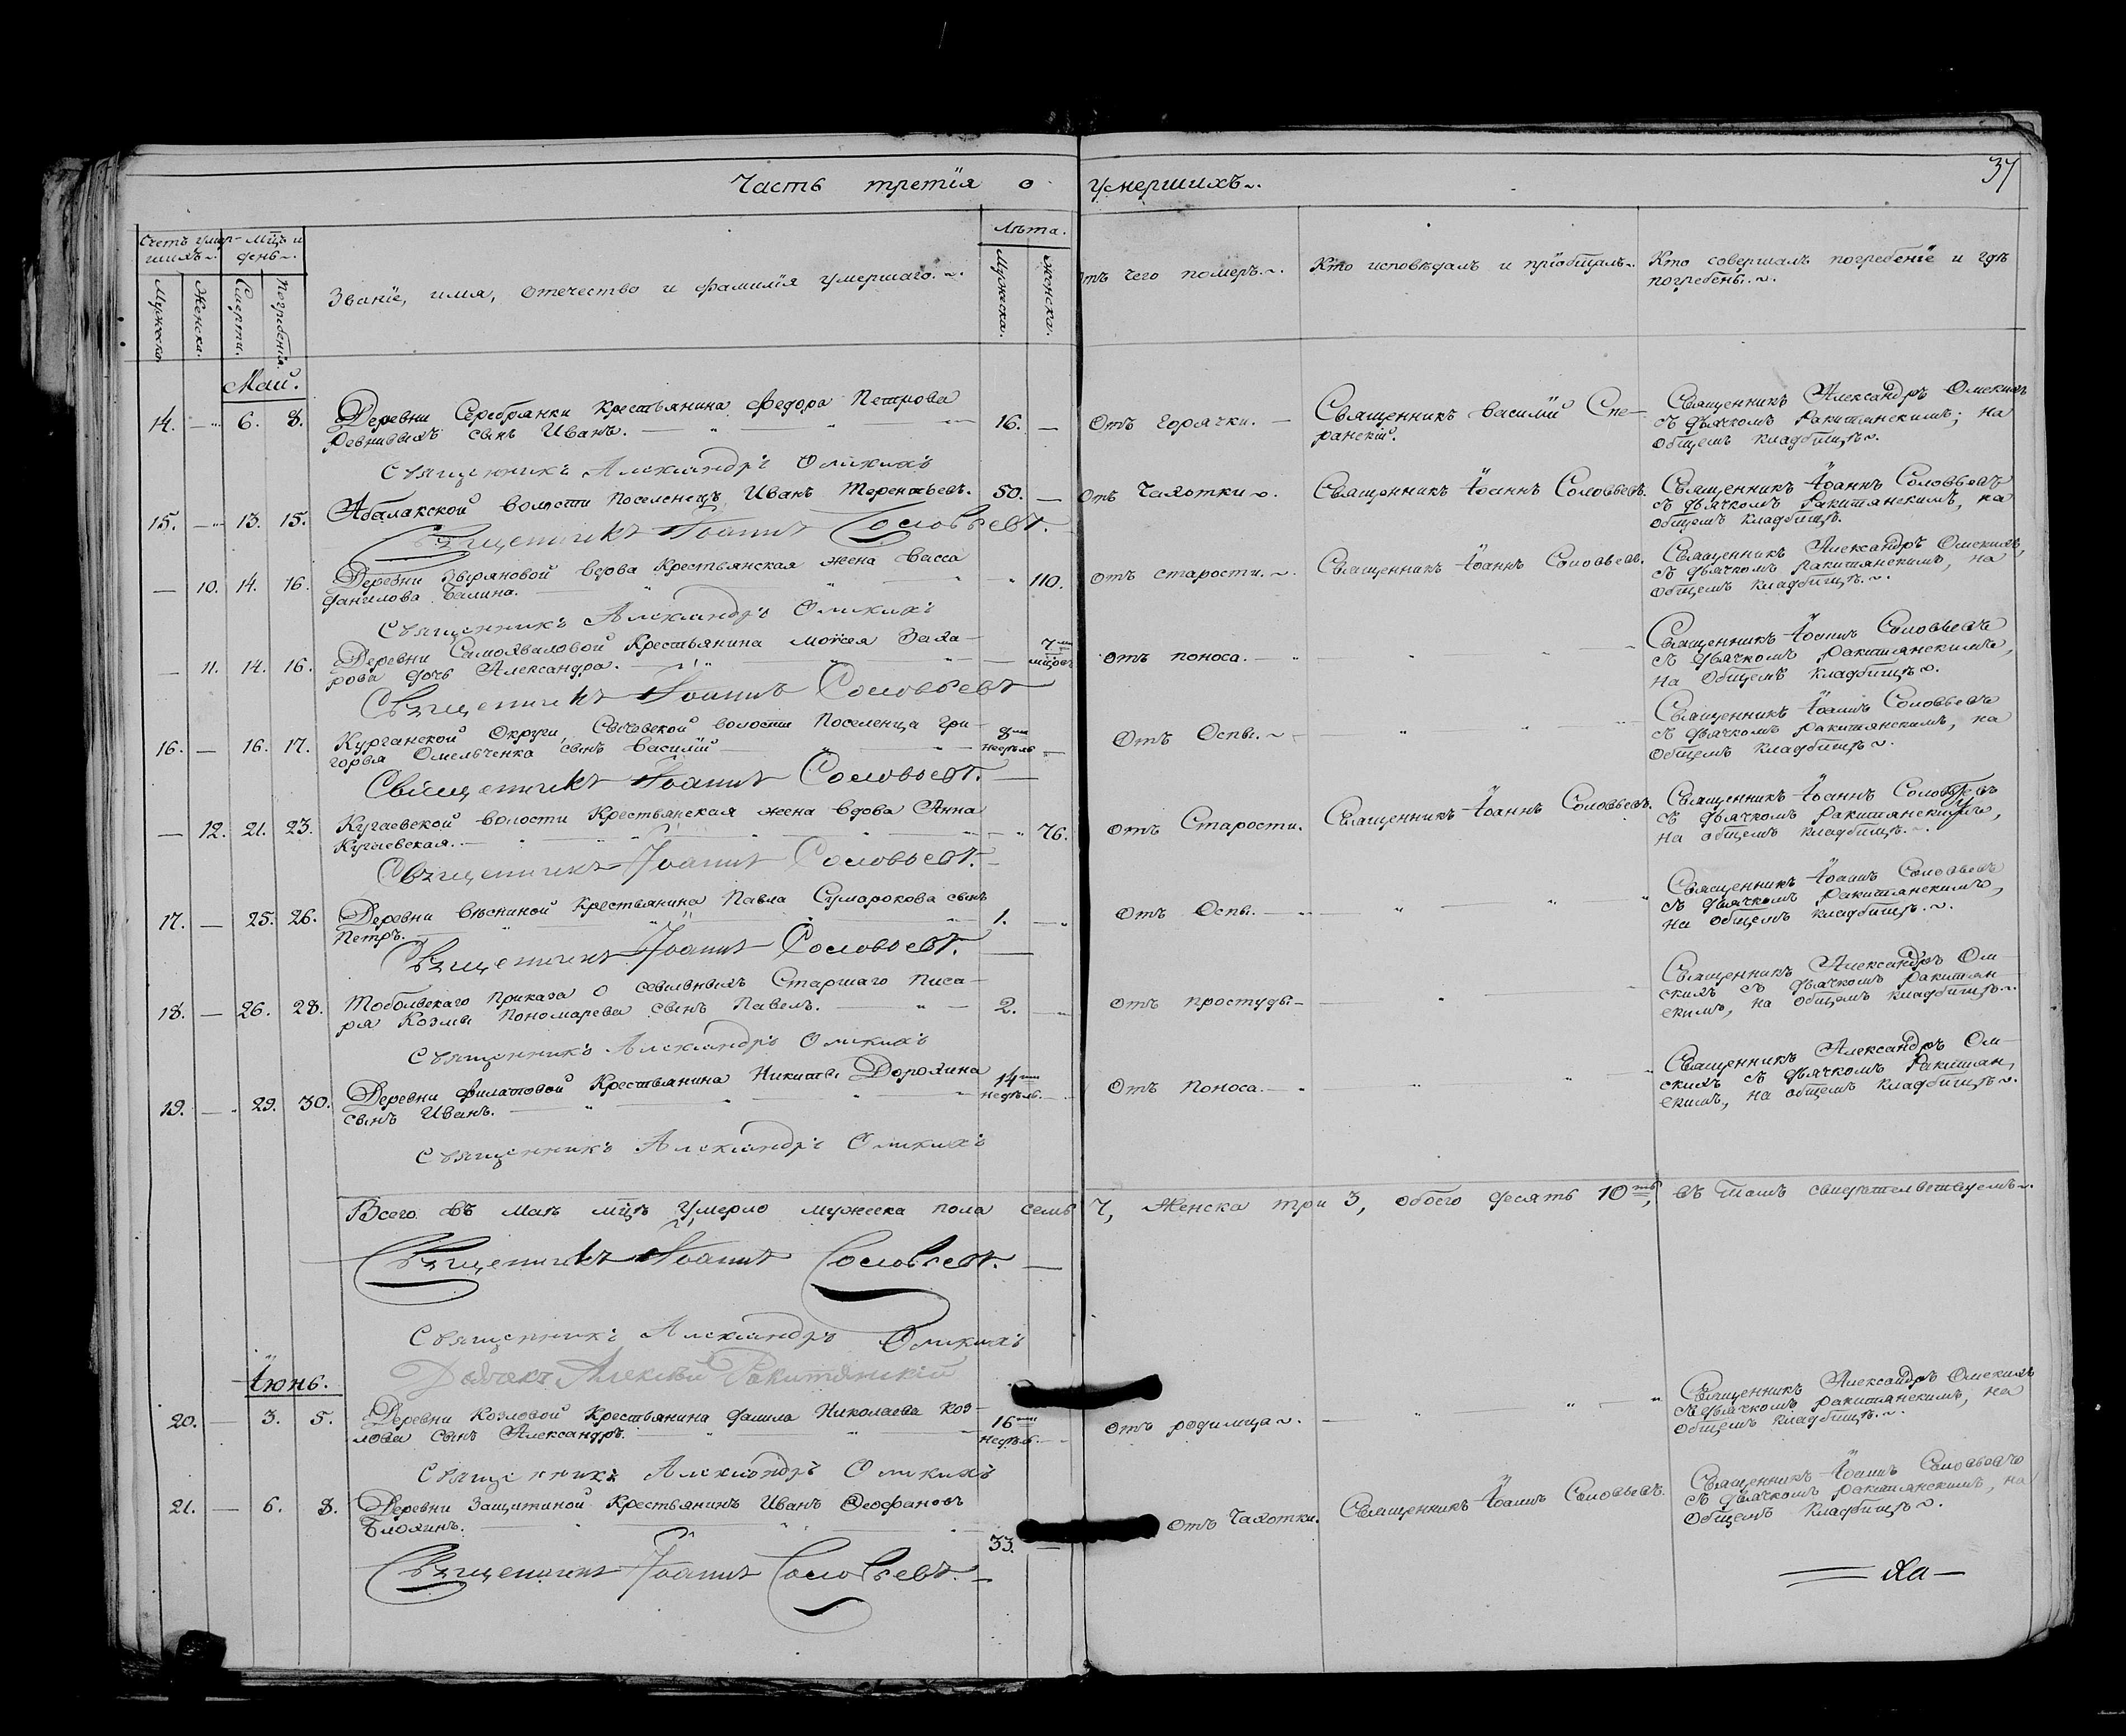 Часть третїя о умершихъ.
37
Счетъ умер-
шихъ.
Мц̃ъ и
день.
Званїе, имя, отечество и фамилїя умершаго.
Лѣта.
Отъ чего померъ.
Кто исповѣдалъ и прїобщалъ.
Кто совершалъ погребенїе и гдѣ
погребены.
Мужеска.
Женска.
Смерти.
Погребенїя.
Мужеска.
Женска.
Май.
14. — 6. 8. Деревни Серебрянки крестьянина Федора Петрова 16. — Отъ горячки. — Священникъ Василий Спе-
сынъ Иванъ.
ранскій.
Священникъ Александръ Омскихъ
съ дьячкомъ Ракитянскимъ; на
общемъ кладбищѣ.
Священникъ Александръ Омскихъ
15. — 13. 15. Абалакской волости поселенецъ Иванъ Терентьевъ. 50. — Отъ Чахотки. Священникъ Іоаннъ Соловьевъ.
Священникъ Іоаннъ Соловьевъ
съ дьячкомъ Ракитянскимъ, на
общемъ кладбищѣ.
Священникъ Іоаннъ Соловьевъ.
— 10. 14. 16. Деревни Зыряновой вдова крестьянская жена Васса 110. Отъ старости. Священникъ Іоаннъ Соловьевъ.
Данилова Балина.
Священникъ Александръ Омскихъ,
съ дьячкомъ Ракитянскимъ, на
общемъ кладбищѣ.
Священникъ Александръ Омскихъ
— 11. 14. 16. Деревни Самохваловой Крестьянина Мойсея Заха- 7 мц̃овъ Отъ поноса.
рова дочь Александра.
Священникъ Іоаннъ Соловьевъ
съ дьячкомъ Ракитянскимъ,
на общемъ кладбищѣ.
Священникъ Іоаннъ Соловьевъ
16. — 16. 17. Курганской Округи, Сычевской волости поселенца Гри- 8 недѣль — Отъ Оспы.
горья Омельченка сынъ Василій
Священникъ Іоаннъ Соловьевъ
съ дьячкомъ Ракитянскимъ, на
общемъ кладбищѣ.
Священникъ Іоаннъ Соловьевъ.
— 12. 21. 23. Кугаевской волости Крестьянская жена вдова Анна — 76. Отъ Старости. Священникъ Іоаннъ Соловьевъ.
Кугаевская.
Священникъ Іоаннъ Соловьевъ
съ дьячкомъ Ракитянскимъ,
на общемъ кладбищѣ.
Священникъ Іоаннъ Соловьевъ.
17. — 25. 26. Деревни крестьянина Павла Сумарокова сынъ 1. — Отъ Оспы.
Петръ.
Священникъ Іоаннъ Соловьевъ
съ дьячкомъ Ракитянскимъ,
на общемъ кладбищѣ.
Священникъ Іоаннъ Соловьевъ.
18. — 26. 28. Тобольскаго приказа о ссыльныхъ Старшаго писа- 2. — Отъ простуды
ря Козмы Пономарева сынъ Павелъ.
Священникъ Александръ Ом-
скихъ съ дьячкомъ Ракитян-
скимъ, на общемъ кладбищѣ.
Священникъ Александръ Омскихъ
19. — 29. 30. Деревни Филатовой Крестьянина Никиты Дорохина 14 недѣль. — Отъ поноса.
сынъ Иванъ.
Священникъ Александръ Ом-
скихъ съ дьячкомъ Ракитян-
скимъ, на общемъ кладбищѣ.
Священникъ Александръ Омскихъ
Всего въ Маѣ мц̃ѣ умерло мужеска пола семь 7, Женска три 3, обоего десять 10ть, въ томъ свидѣтельствуемъ.
Священникъ Іоаннъ Соловьевъ.
Священникъ Александръ Омскихъ
Дьячекъ Алексѣй Ракитянскій
Іюнь.
20. — 3. 5. Деревни Козловой Крестьянина Данила Николаева Коз- 16 недѣль. — Отъ родимца.
лова сынъ Александръ.
Священникъ Александръ Омскихъ
съ дьячкомъ Ракитянскимъ, на
общемъ кладбищѣ.
Священникъ Александръ Омскихъ
21. — 6. 8. Деревни Защитиной Крестьянинъ Иванъ Феофановъ 33. — Отъ Чахотки. Священникъ Іоаннъ Соловьевъ.
Блохинъ.
Священникъ Іоаннъ Соловьевъ
съ дьячкомъ Ракитянскимъ, на
общемъ кладбищѣ.
Священникъ Іоаннъ Соловьевъ.